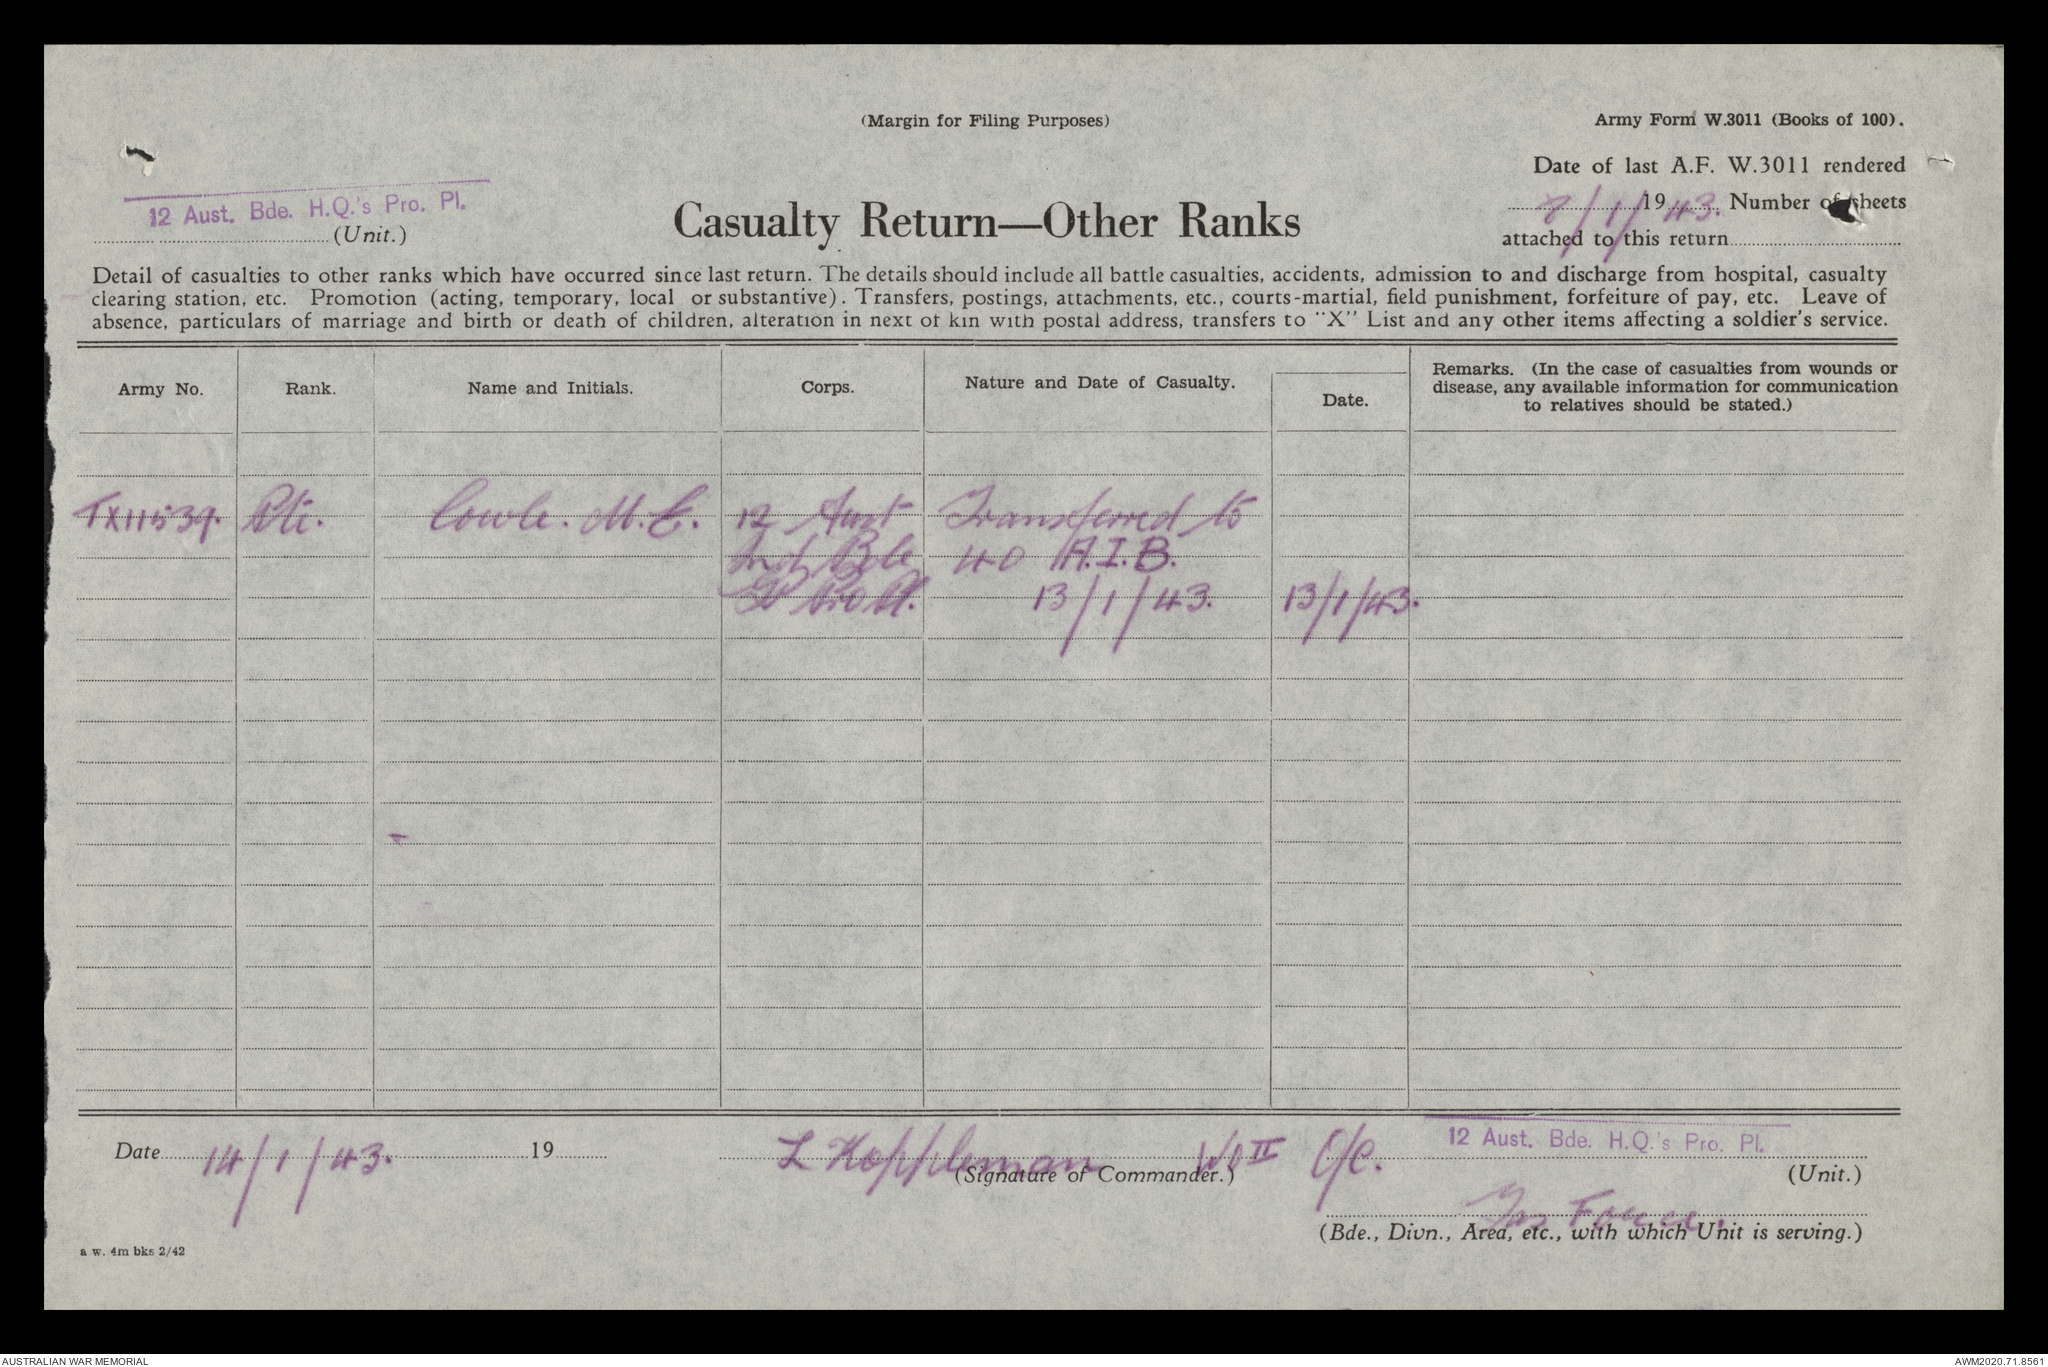 (Margin for Filing Purposes)
Army Form W.3011 (Books of 100).
Date of last A.F. W.3011 rendered
8/1/1943. Number of sheets
attached to this return
12 Aust. Bde. H.Q.'s Pro. Pl.
(Unit.)
Casualty Return—Other Ranks
Detail of casualties to other ranks which have occurred since last return. The details should include all battle casualties, accidents, admission to and discharge from hospital, casualty
clearing station, etc. Promotion (acting, temporary, local or substantive). Transfers, postings, attachments, etc., courts-martial, field punishment, forfeiture of pay, etc. Leave of
absence, particulars of marriage and birth or death of children, alteration in next of kin with postal address, transfers to "X" List and any other items affecting a soldier's service.
Army No. Rank. Name and Initials. Corps. Nature and Date of Casualty. Date. Remarks. (In the case of casualties from wounds or
disease, any available information for communication
to relatives should be stated.)
TX11539. Pte. Cowle. M.E. 12 Aust Transferred to
Inf Bde 40 A.I.B.
Pro Pl. 13/1/43. 13/1/43.
Date 14/1/43. 19 L Koppleman WO II O/C. 12 Aust. Bde. H.Q.'s Pro. Pl.
(Signature of Commander.) (Unit.)
Force.
(Bde., Divn., Area, etc., with which Unit is serving.)
a w. 4m bks 2/42
AUSTRALIAN WAR MEMORIAL AWM2020.71.8561